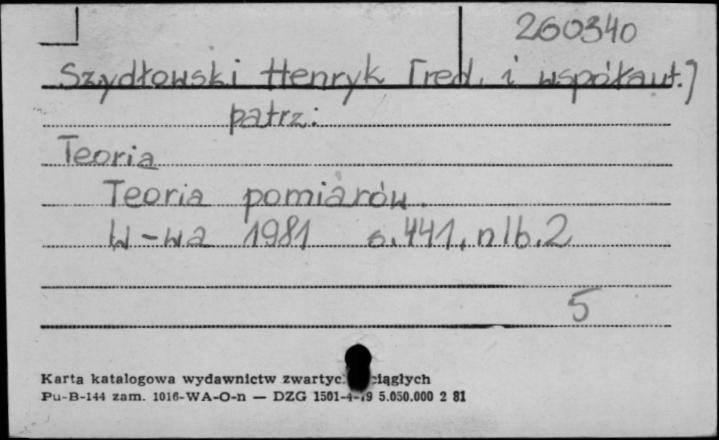 260340
Szydłowski Henryk [red. i współaut.]
patrz:
Teoria
Teoria pomiarów.
W-wa 1981 s. 441, nlb. 2
5
Karta katalogowa wydawnictw zwartyc ciągłych
Pu-B-144 zam. 1016-WA-O-n — DZG 1501-4-79 5.050.000 2 81